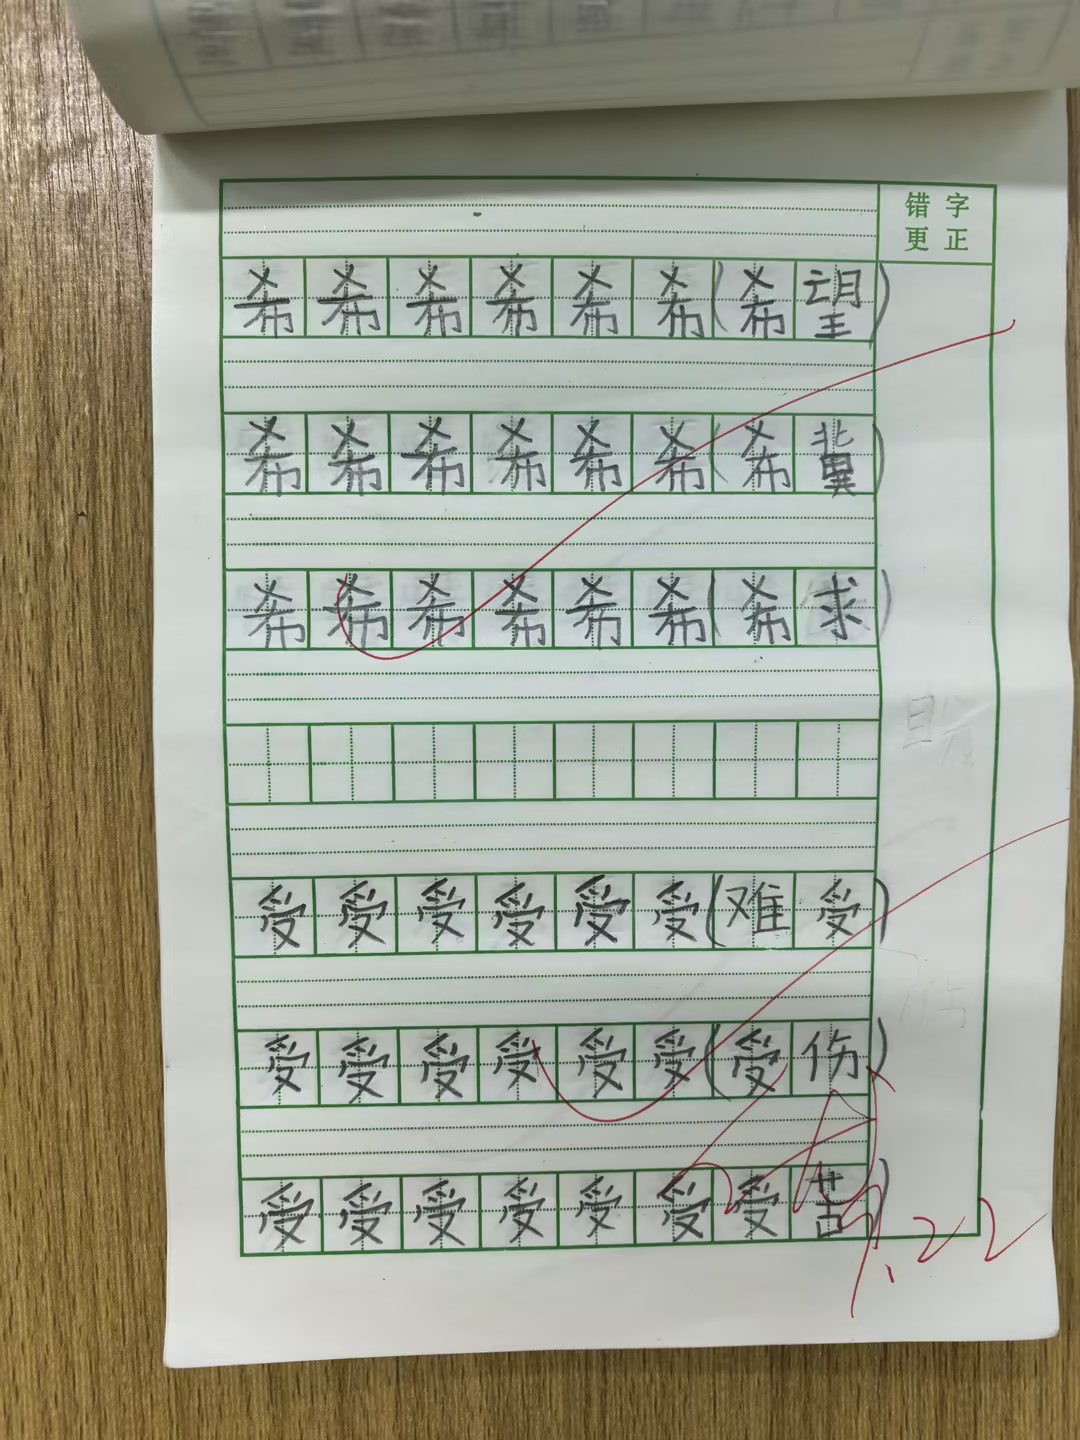 错字
更正
希希希希希希(希望)
希希希希希希(希冀)
希希希希希希(希求)
受受受受受受(难受)
受受受受受受(受伤)
受受受受受受(受苦)